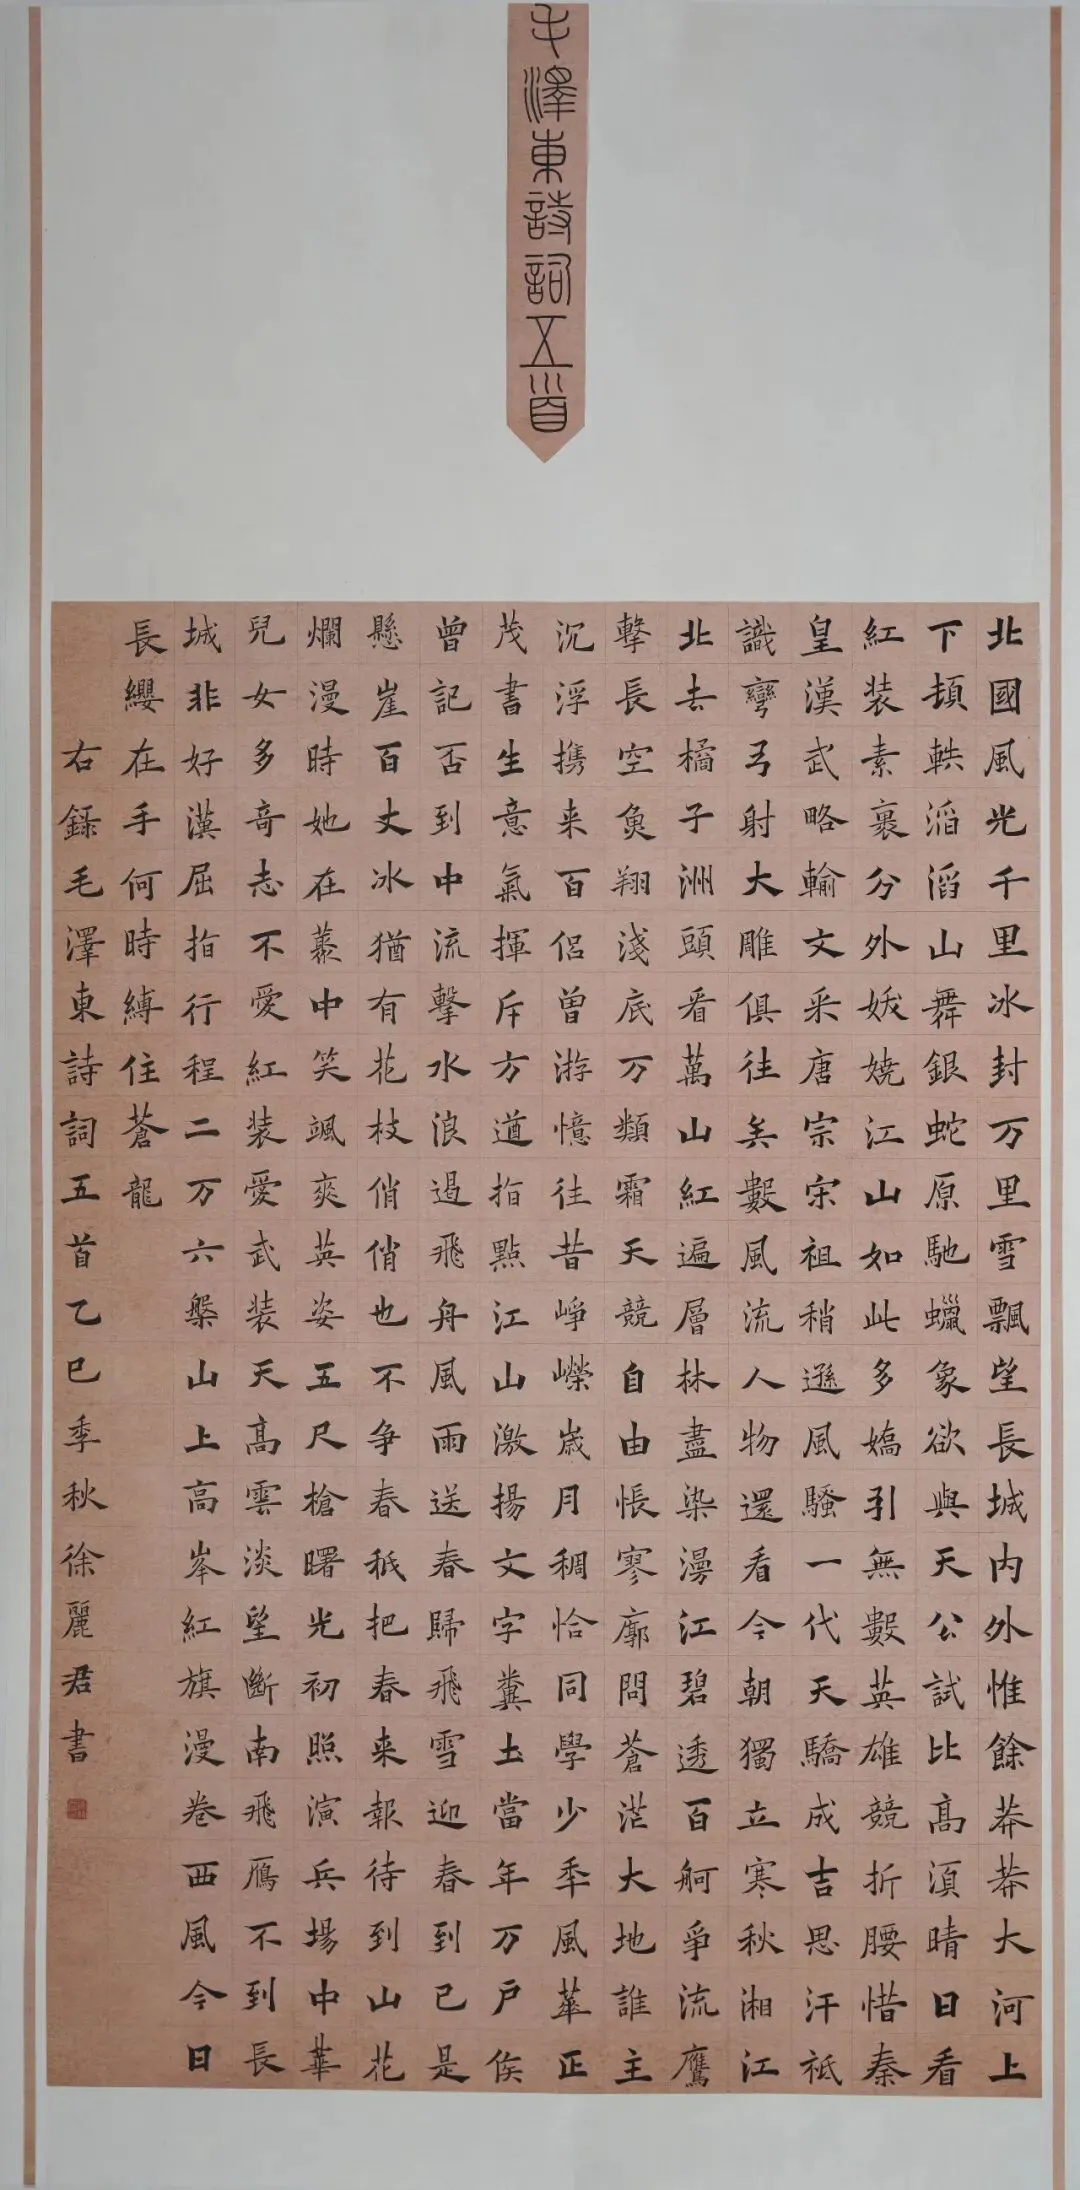 毛澤東詩詞五首
北國風光千里冰封万里雪飄望長城内外惟餘莽莽大河上
下頓軼滔滔山舞銀蛇原馳蠟象欲與天公試比高須晴日看
紅装素裹分外妖嬈江山如此多嬌引無數英雄競折腰惜秦
皇漢武略輸文采唐宗宋祖稍遜風騷一代天驕成吉思汗祗
識彎弓射大雕俱往矣數風流人物還看今朝獨立寒秋湘江
北去橘子洲頭看萬山紅遍層林盡染漫江碧透百舸爭流鷹
擊長空魚翔淺底万類霜天競自由悵寥廓問蒼茫大地誰主
沉浮携来百侣曾游憶往昔崢嶸歲月稠恰同學少年風華正
茂書生意氣揮斥方遒指點江山激揚文字糞土當年万戶侯
曾記否到中流擊水浪遏飛舟風雨送春歸飛雪迎春到已是
懸崖百丈冰猶有花枝俏俏也不争春秖把春来報待到山花
爛漫時她在叢中笑颯爽英姿五尺槍曙光初照演兵場中華
兒女多奇志不愛紅装愛武装天高雲淡望斷南飛雁不到長
城非好漢屈指行程二万六槃山上高峯紅旗漫卷西風今日
長纓在手何時縛住蒼龍
右錄毛澤東詩詞五首乙巳季秋徐麗君書